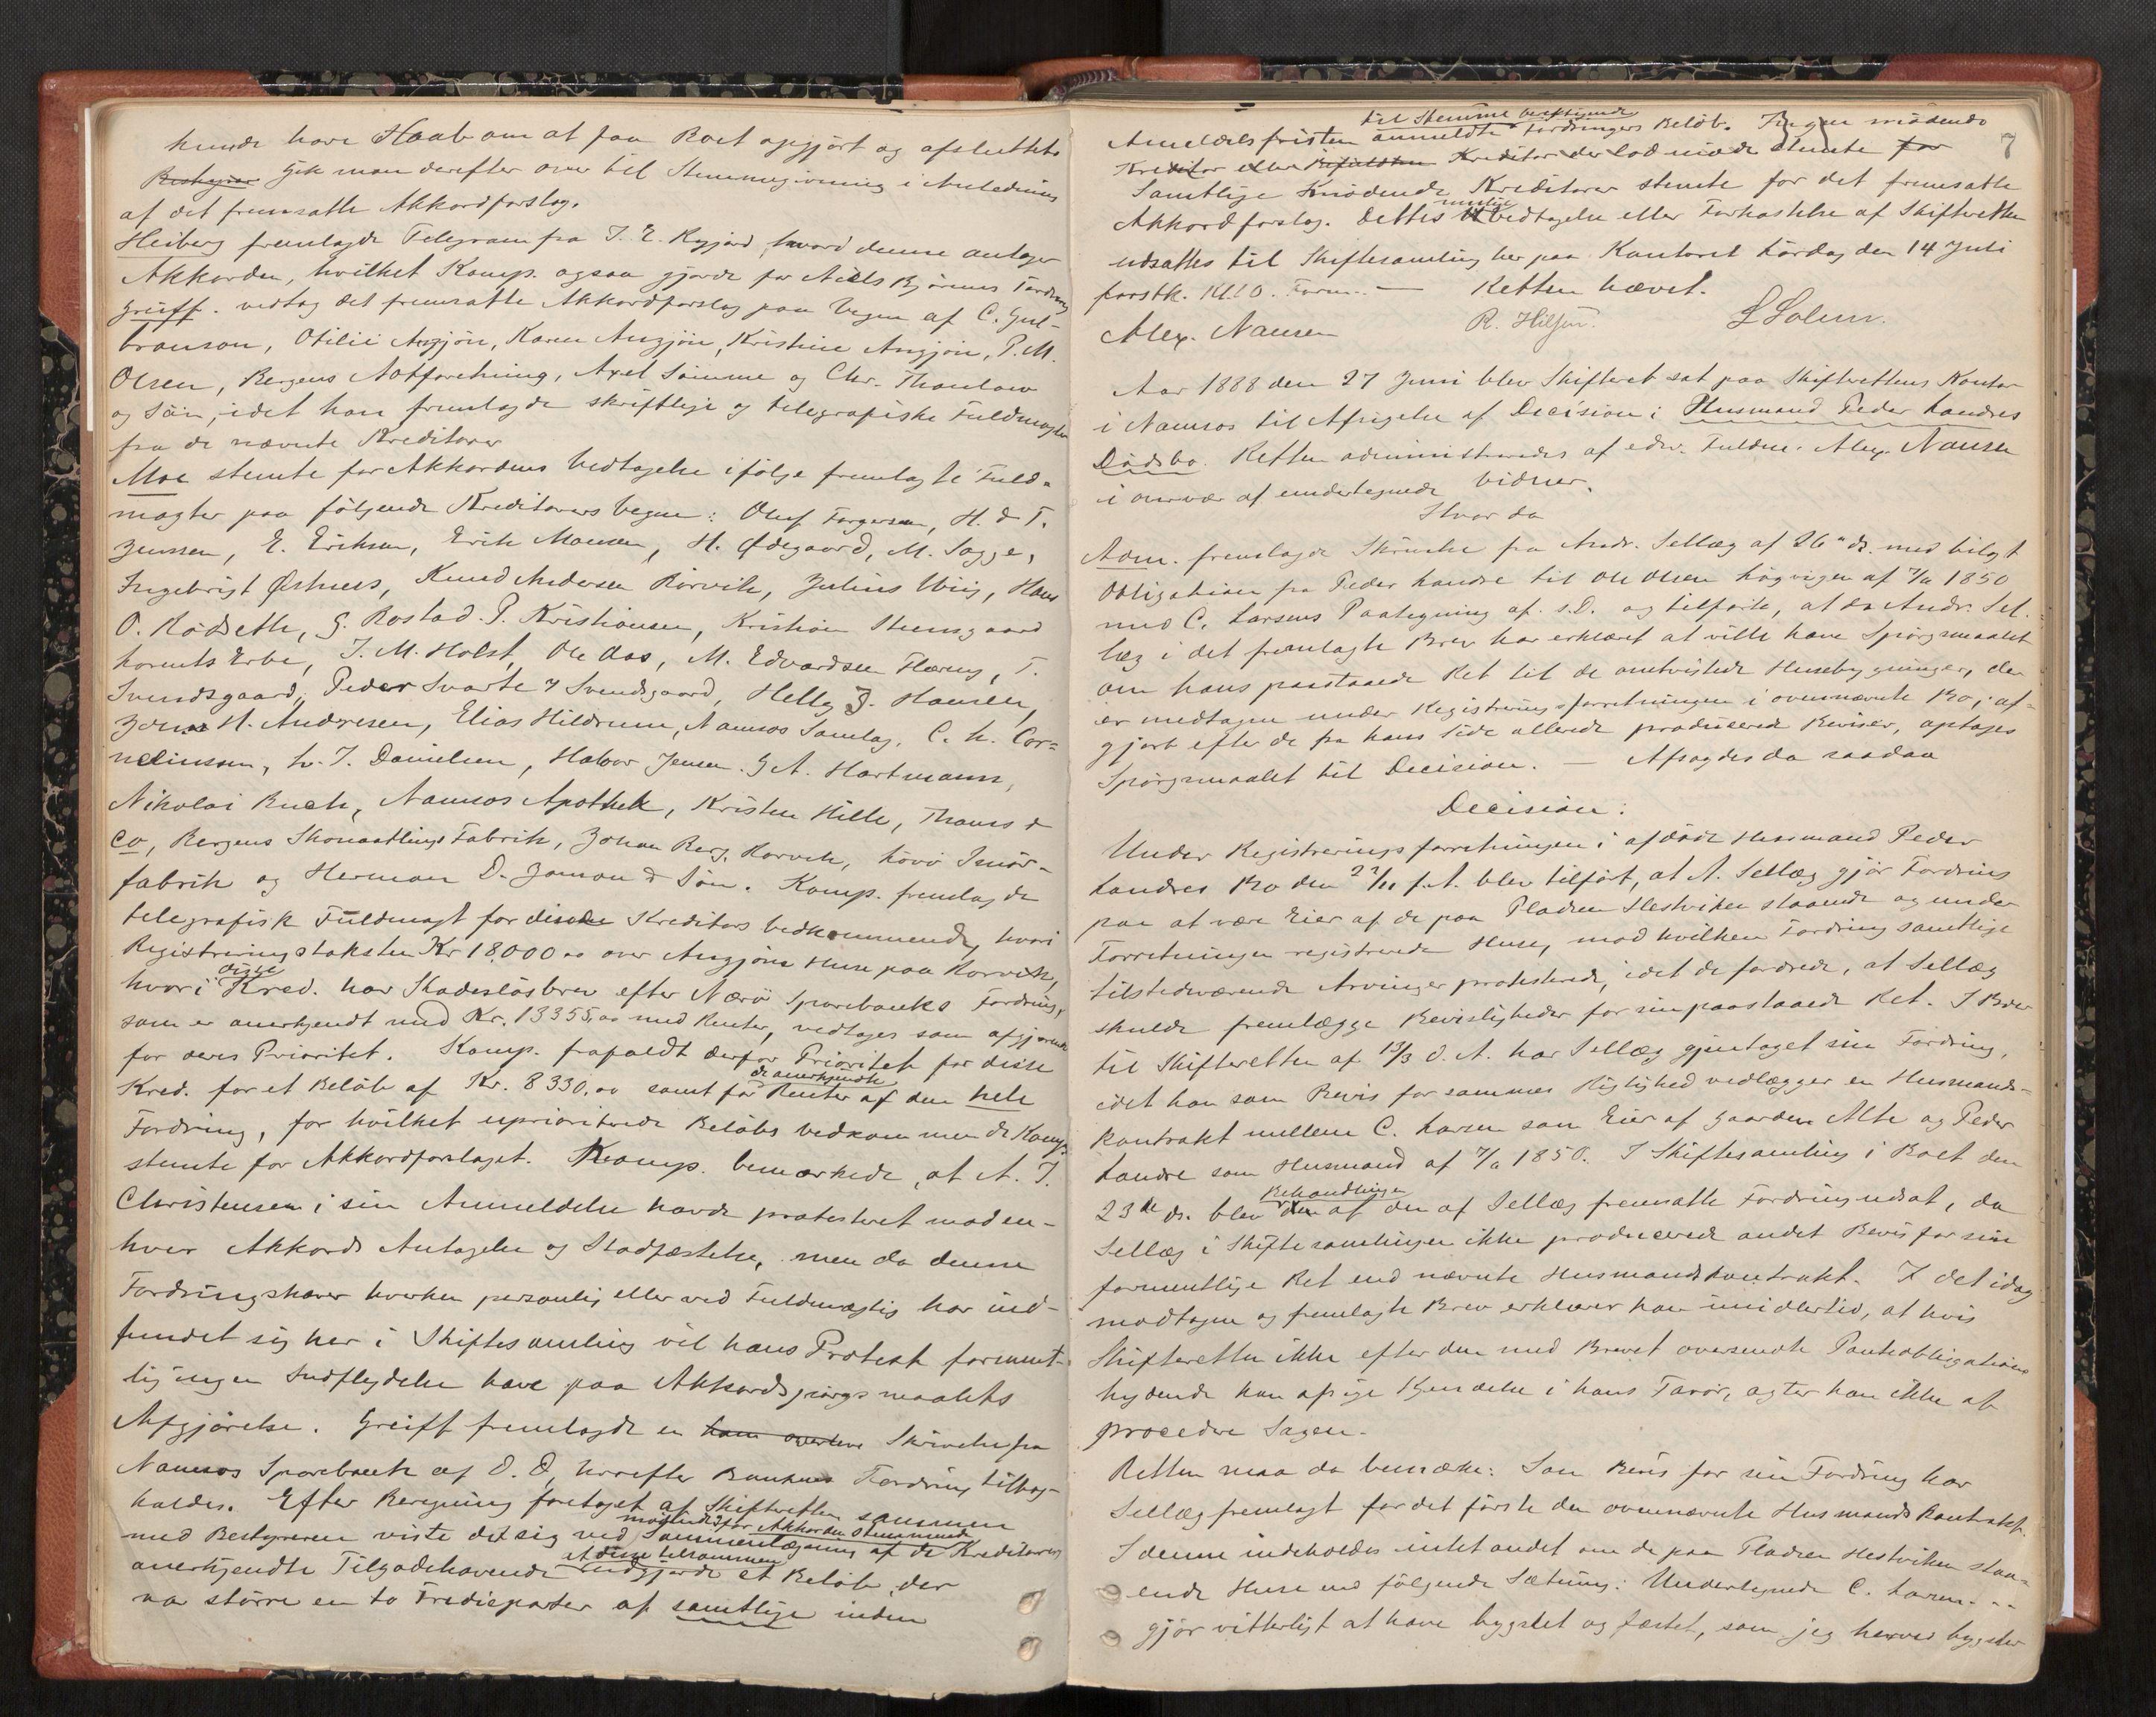 kunde have Haab om at faa Boet opgjört og afsluttet.
Bestyrer Gik man derefter over til Stemmegivning i Anledning
af det fremsatte Akkordforslag.
Heiberg fremlagde Telegram fra J. E. hvori denne antager
Akkorden, hvilket Komp. ogsaa gjorde for Niels Björums Fordring
Greiff. vedtog det fremsatte Akkordforslag paa Vegne af C. Gul-
branson, Otilie Angjön, Karen Angjön, Kristine Angjön, P. M.
Olsen, Bergens Notforretning, Axel Sömme og Chr. Thaulow
og Sön, idet han fremlagde skriftlige og telegrafiske Fuldmagter
fra de nævnte Kreditorer
Moe stemte for Akkordens Vedtagelse ifölge fremlagte Fuld-
magter paa fölgende Kreditorers Vegne: Oluf Torgersen, H. & T.
Jenssen, E. Eriksen, Erik Monsen, H. Ødegaard, M. Sagge,
Ingebrigt Østnes, Knud Andersen Rörvik, Julius Wiig, Hans
O. Rödseth, G. Rostad. P. Kristiansen, Kristian Steensgaard
Lorents Erbe, J. M. Holst, Ole Aas, M. Edvardsen Flæreng, T.
Svendsgaard, Peder Svarte Svendsgaard, Helly J. Hansen,
John H. Andresen, Elias Hildrum, Namsos Samlag, C. L. Cor-
neliussen, L. J. Danielsen, Halvor Jensen. G A. Hartmann,
Nikolai Buch, Namsos Apothek, Kristen Hille, Thams &
Co, Bergens Skomaatlings Fabrik, Johan Berg. Korvik, Lövö Smör-
fabrik og Herman D. Jomon & Sön. Komp. fremlagde
telegrafisk Fuldmagt for disse Kreditors Vedkommende, hvori
Registreringstaksten Kr 18000 oo over Angjöns Huse paa Korvik,
hvori disse Kred. har Skadeslösbrev efter Nærö Sparebanks Fordring,
som er anerkjendt med Kr. 13355,oo med Renter, vedtages som afgjörende
for deres Prioritet. Komp. frafaldt derfor Prioritet for disse
Kred. for et Belöb af Kr. 8330,oo samt for de anerkjendte Renter af den hele
Fordring, for hvilket uprioriterede Belöbs Vedkommende Komp.
stemte for Akkordforslaget. Komp. bemærkede, at A. J.
Christensen i sin Anmeldelse havde protesteret mod en-
hver Akkords Antagelse og Stadfæstelse, men da denne
Fordringshaver hverken personlig eller ved Fuldmægtig har ind-
fundet sig her i Skiftesamling vil hans Protest forment-
lig ingen Indflydelse have paa Akkordspörgsmaalets
Afgjörelse. Greiff fremlagde en Skrivelse fra
Namsos Sparebank af D. D, hvorefter Bankens Fordring tilbage-
holdes. Efter Beregning foretaget af Skifteretten sammen
med Bestyreren viste det sig ved Sammenlægning af de mödende for Akkorden stemmende Kreditorers
anerkjendte Tilgodehavende at disse tilsammen udgjorde et Belöb, der
var större en to Trediepater af samtlige inden
7
Anmeldelsfristen anmeldte til Stemme berettigende Fordringers Belöb. Ingen mödende
Kreditor eller Kreditor der lod möde stemte for
Samtlige mödende Kreditorer stemte for det fremsatte
Akkordforslag. Dettes mulige Vedtagelse eller Forkastelse af Skifteretten
udsattes til Skiftesamling her paa Kontoret Lördag den 14 Juli
förstk. Kl. 10. Form. — Retten hævet.
Alex. Nansen R. Hilsen. L Solem.
Aar 1888 den 27 Juni blev Skifteret sat paa Skifterettens Kontor
i Namsos til Afsigelse af Decision i Husmand Peder Landres
Dödsbo. Retten administreredes af edsv. Fuldm. Alex. Nansen
i overvær af undertegnede Vidner.
Hvor da
Adm. fremlagde Skrivelse fra Andr. Sellæg af 26de ds. med bilagt
Obligation fra Peder Landre til Ole Olsen Högvigen af 7/11 1850
med C. Larsens Paategning af. s. D. og tilförte, at da Andr. Sel-
læg i det fremlagte Brev har erklæret at ville have Spörgsmaalet
om hans paastaaede Ret til de omtvistede Husebygninger, der
er medtagen under Registreringsforretningen i ovennævnte Bo, af-
gjort efter de fra hans Side allerede producerede Beviser, optages
Spörgsmaalet til Decision. — Afsagdes da saadan
Decision:
Under Registreringsforretningen i afdöde Husmand Peder
Landres Bo den 22/11 f. A. blev tilfört, at A. Sellæg gjör Fordring
paa at være Eier af de paa Pladsen Hestviken staaende og under
Forretningen registrerede Huse, mod hvilken Fordring samtlige
tilstedeværende Arvinger protesterede, idet de fordrede, at Sellæg
skulde fremlægge Bevisligheder for sin paastaaede Ret. I Brev
til Skifteretten af 13/3 d. A. har Sellæg gjentaget sin Fordring,
idet han som Bevis for sammes Rigtighed vedlægger en Husmands-
kontrakt mellem C. Larsen som Eier af Gaarden Alte og Peder
Landre som Husmand af 7/11 1850. I Skiftesamling i Boet den
23de ds. blev Behandlingen af den af Sellæg fremsatte Fordring udsat, da
Sellæg i Skiftesamlingen ikke producerede andet Bevis for sin
formentlige Ret end nævnte Husmandskontrakt. I det idag
modtagne og fremlagte Brev erklærer han imidlertid, at hvis
Skifteretten ikke efter den med Brevet oversendte Panteobligations
Lydende kan afsige Kjendelse i hans Favör, agter han ikke at
procedere Sagen.
Retten maa da bemærke: Som Bevis for sin Fordring har
Sellæg fremlagt for det förste den ovennævnte Husmandskontrakt.
I denne indeholdes intet andet om de paa Pladsen Hestviken staa-
ende Huse end fölgende Sætning: Undertegnede C. Larsen. --
gjör vitterligt at have bygslet og fæstet, som jeg herved bygsler